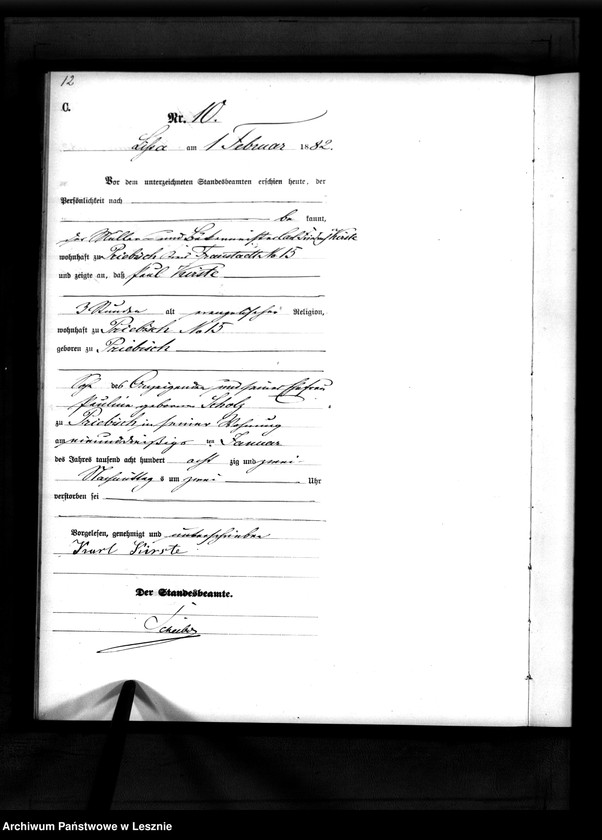 12
C.
Nr. 10.
Lissa am 1 Februar 1882.
Vor dem unterzeichneten Standesbeamten erschien heute, der
Persönlichkeit nach
be kannt,
der Müller- und Bäckermeister Kirste
wohnhaft zu Priebisch Kreis Fraustadt No 15
und zeigte an, daß Paul Kirste
3 Stunden alt evangelischer Religion,
wohnhaft zu Priebisch No 15
geboren zu Priebisch
Sohn des Anzeigenden und seiner Ehefrau
Pauline geborenen Scholz
zu Priebisch in seiner Wohnung
am einunddreißigsten Januar
des Jahres tausend acht hundert acht zig und zwei
Nachmittags um zwei Uhr
verstorben sei
Vorgelesen, genehmigt und unterschrieben
Karl Kirste
Der Standesbeamte.
Archiwum Państwowe w Lesznie